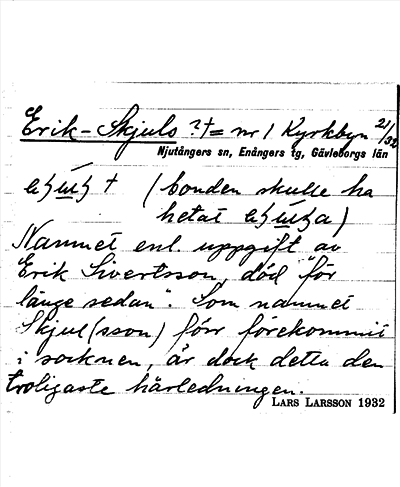 Erik-Skjuls ?† = nr 1 Kyrkbyn 21/32
Njutångers sn, Enångers tg, Gävleborgs län
† (bonden skulle ha
hetat
Namnet enl. uppgift av
Erik Sivertsson, död "för
länge sedan". Som namnet
Skjul(sson) förr förekommit
i socknen, är dock detta den
troligaste härledningen.
LARS LARSSON 1932